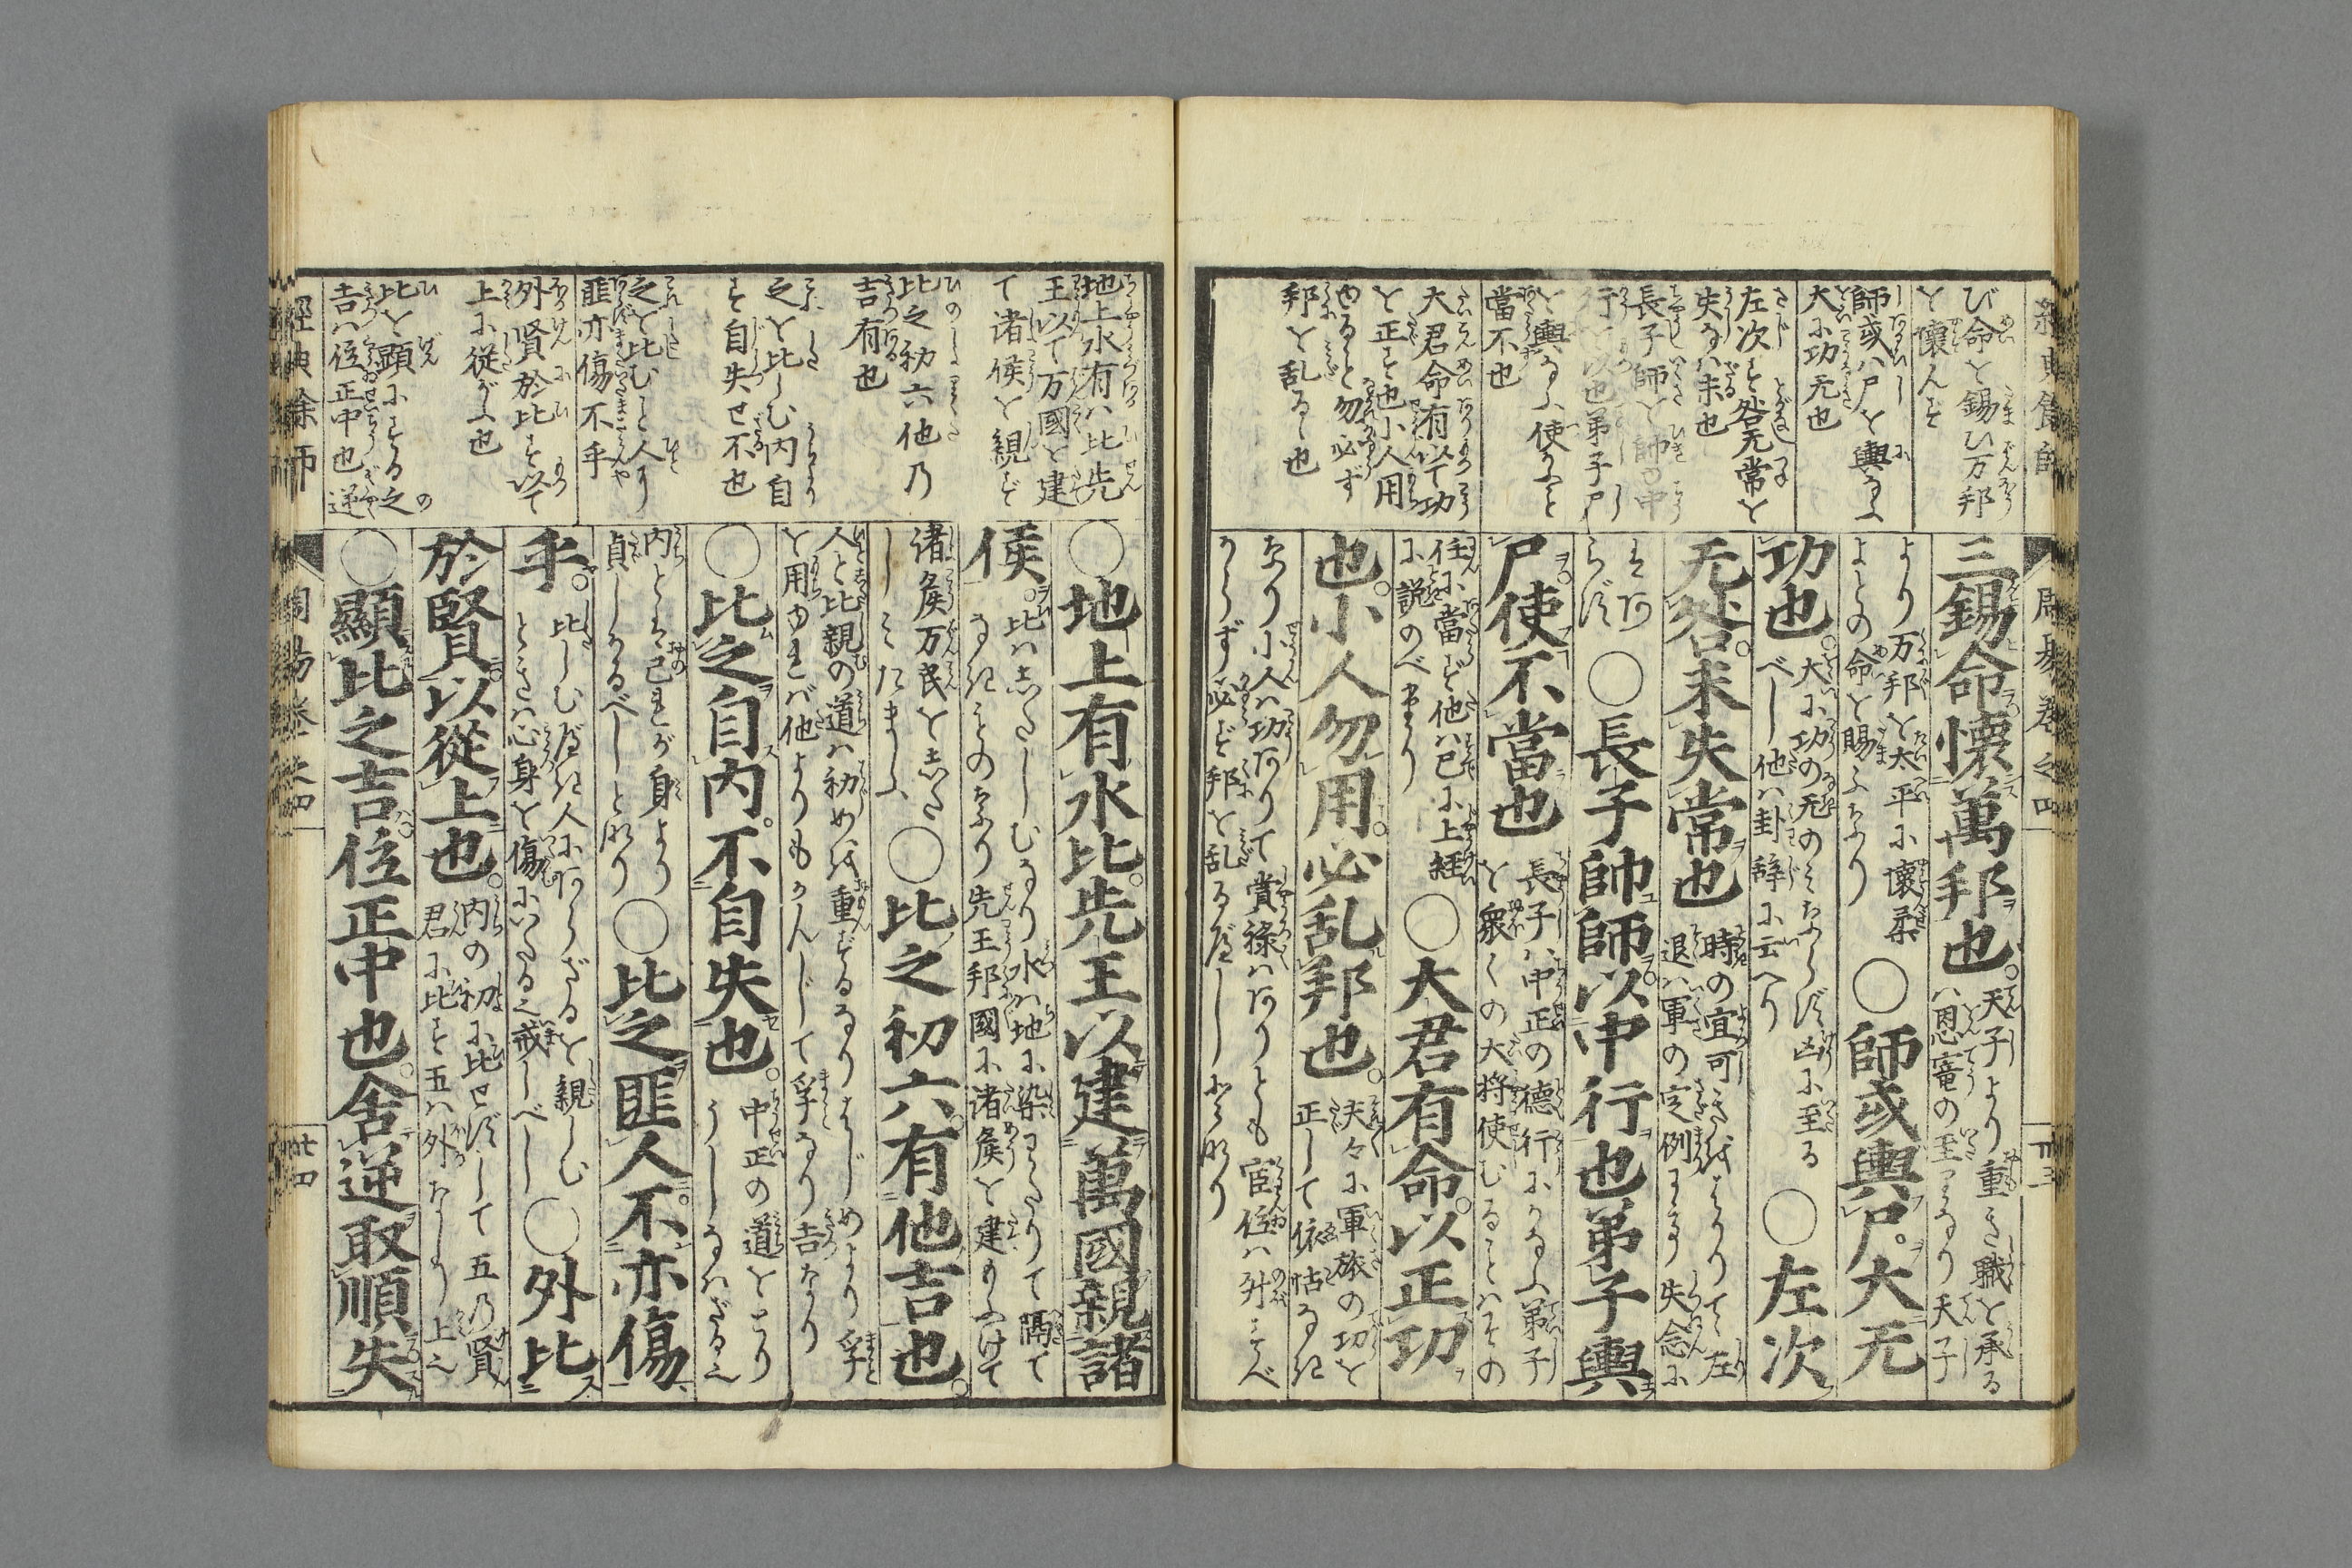 び命を錫ひ万邦
を懐んず
師或ハ尸を輿なふ
大に功无也
左次ず咎无常を
失なハ未也
長子師を帥る中
行を以也弟子尸
を輿なふ使ふと
當不也
大君命有以て功
を正ず也小人用
ゆると勿必ず
邦を乱る也
三錫命懷萬邦也。
天子より重き職を承る
ハ恩寵の至りなり天子
より万邦を太平に懷柔
よとの命を賜ふなり
○師或輿尸。大无
功也。
大に功の无のみならず凶に至る
べし他ハ卦辞に云へり
○左次
无咎。未失常也
時の宜可きをはかりて左
退ハ軍の定例なり失念に
あらず
○長子帥師。以中行也弟子輿
尸。使不當也
長子ハ中正の德行にかなふ弟子
を衆くの大将使むることハその
任に當ず他ハ已に上経
に説のべまり
○大君有命。以正功
也。小人勿用。必乱邦也。
夫々に軍旅の功を
正して依怙なき
なり小人ハ功ありて賞禄ハありとも宦位ハ舛すべ
からず必ず邦を乱るべしとなり
地上水有ハ比先
王以て万國を建
て诸侯を親ず
比之初六他乃
吉有也
之を比しむ内自
ず自失せ不也
之を比むと人に
匪亦傷不乎
外賢於比ず以て
上に従がふ也
比を顯にする之
吉ハ位正中也逆
○地上有水比。先王以建萬國親諸
侯。
比ハしたしむなり水ハ地に染わたりて隔て
なきものなり先王邦國に诸侯を建わけて
诸侯万民をした
しみたまふ
○比之初六。有他吉也。
人と比親の道ハ初めを重ずるなりはじめより孚
を用ゆれば他よりもかんじて孚なり吉なり
○比之自内。不自失也。
中正の道をとり
うしなハざる也
内とハ己が身より
貞しかるべしとなり
○比之匪人。不亦傷
乎。
比しむべき人にあらざるを親しむ
ときハ心身を傷にいたる之戒しべし
○外比
於賢。以從上也。
内の初に比せずして五の賢
君に比ず五ハ外なり上也
○顯比之吉。位正中也。舍逆取順失
經典餘師
周易卷之四
廿四